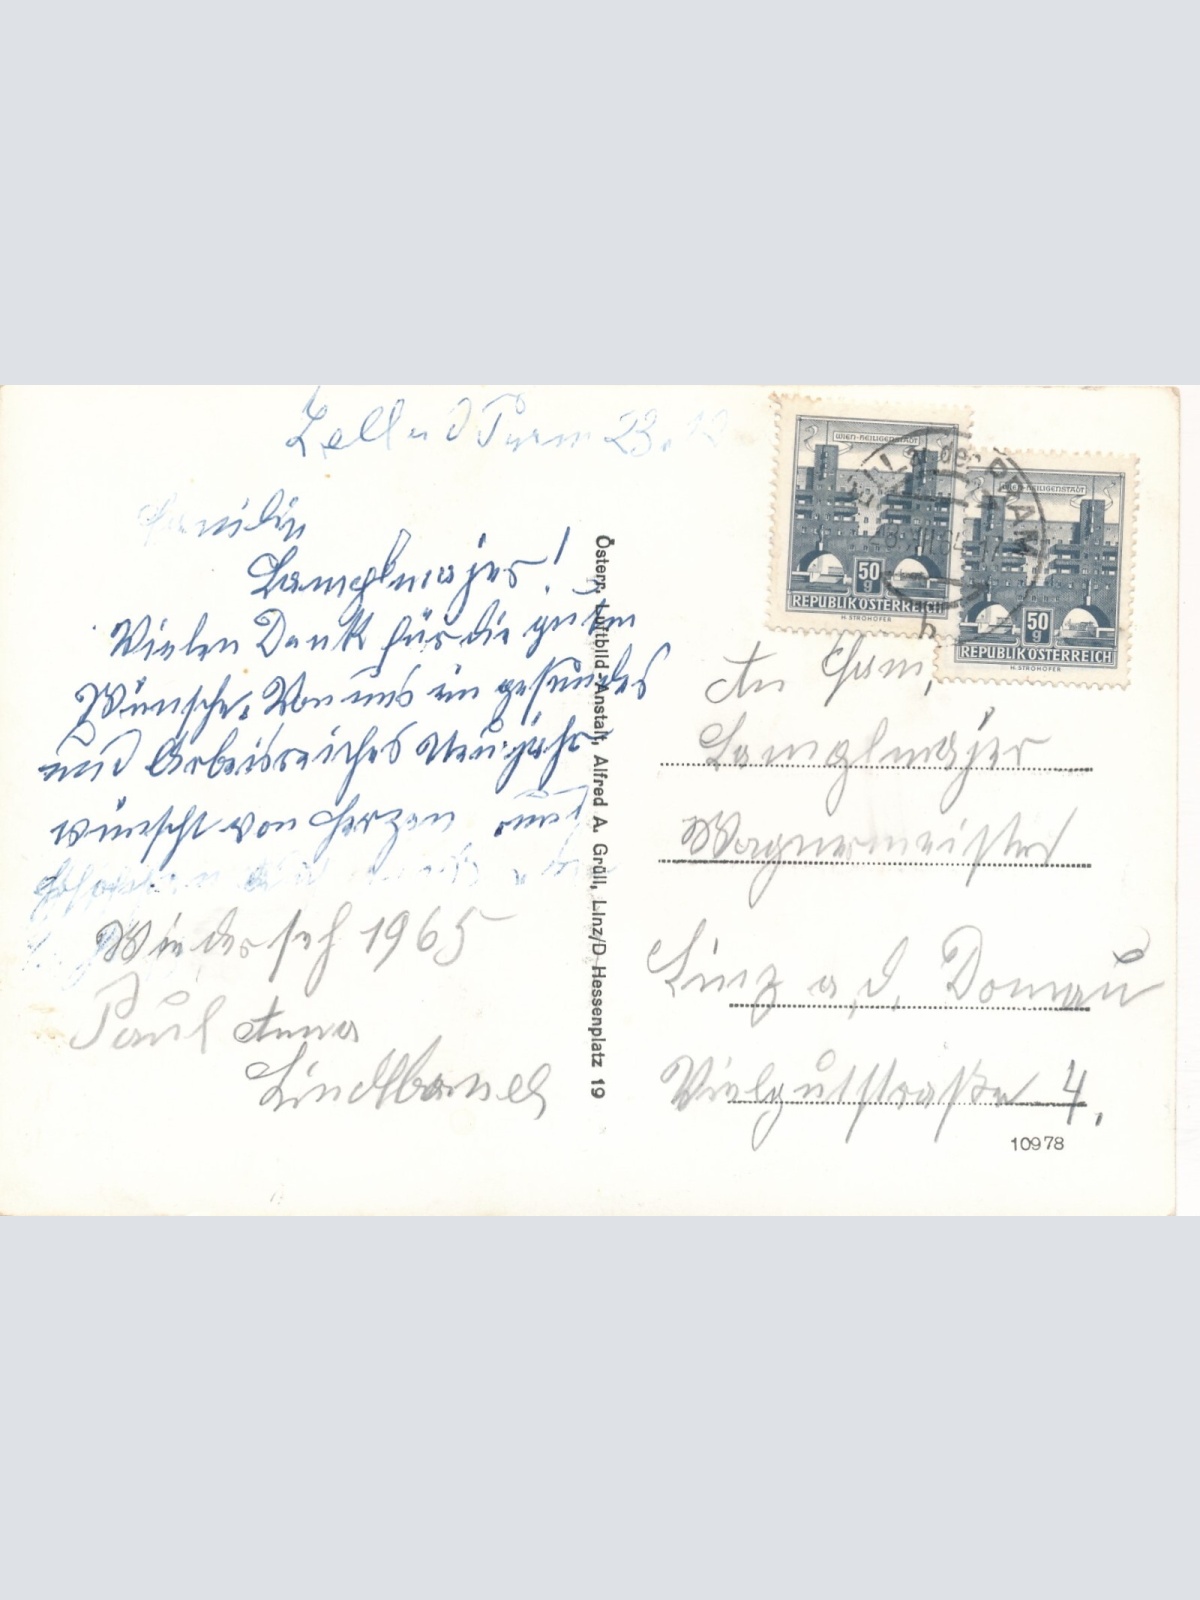 Zell a d Pram 23. 12
Familie
Langlmajer!
Vielen Dank für die guten
Wünsche. Von uns ein gesundes
und Arbeitsreiches Neujahr
wünscht von Herzen
Wiederseh 1965
Paul Anna
Österr. Luftbild-Anstalt, Alfred A. Gräll, Linz/D Hessenplatz 19
WIEN-HEILIGENSTADT
50
g
REPUBLIK ÖSTERREICH
H. STROHOFER
WIEN-HEILIGENSTADT
50
g
REPUBLIK ÖSTERREICH
H. STROHOFER
ZELL an der PRAM
b
An Fam,
Langlmajer
Wagnermeister
Linz a, d, Donau
Vielgutstraße 4,
10978